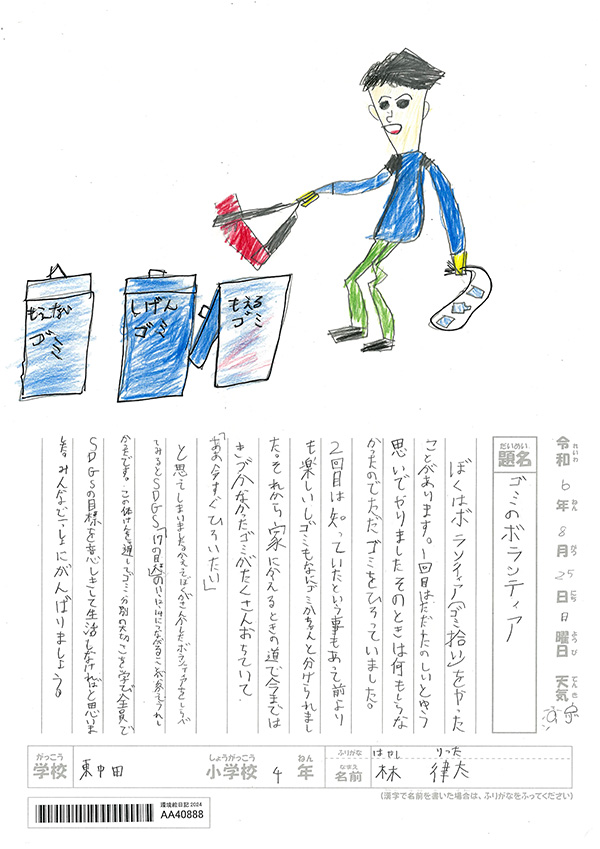 もえない
ゴミ
しげん
ゴミ
もえる
ゴミ
令和6年8月25日日曜日 天気
れいわ ねん がつ にち ようび てんき
だいめい
題名 ゴミのボランティア
ぼくはボランティア(ゴミ拾い)をやった
ことがあります。1回目はただたのしいとゆう
思いでやりましたそのときは何もしらな
かったのでただゴミをひろっていました。
2回目は知っていたという事もあって前より
も楽しいしゴミもなにゴミかちゃんと分けられまし
た。それから家に冷えるときの道で今までは
きづかなかったゴミがたくさんおちていて
「あぁ今すぐひろいたい」
と思えてしまいました。
てみるとSDGS「17の目標」の
かったです。この体けんを通してゴミ分別の大切ことを学で全員で
SDGSの目標を意しきして生活しなければと思いま
した。みんなでいっしょにがんばりましょう。
がっこう
学校
東中田
しょうがっこう
小学校
4
ねん
年
ふりがな
はやし りった
なまえ
名前
林 律太
(漢字で名前を書いた場合は、ふりがなをふってください)
環境絵日記 2024
AA40888